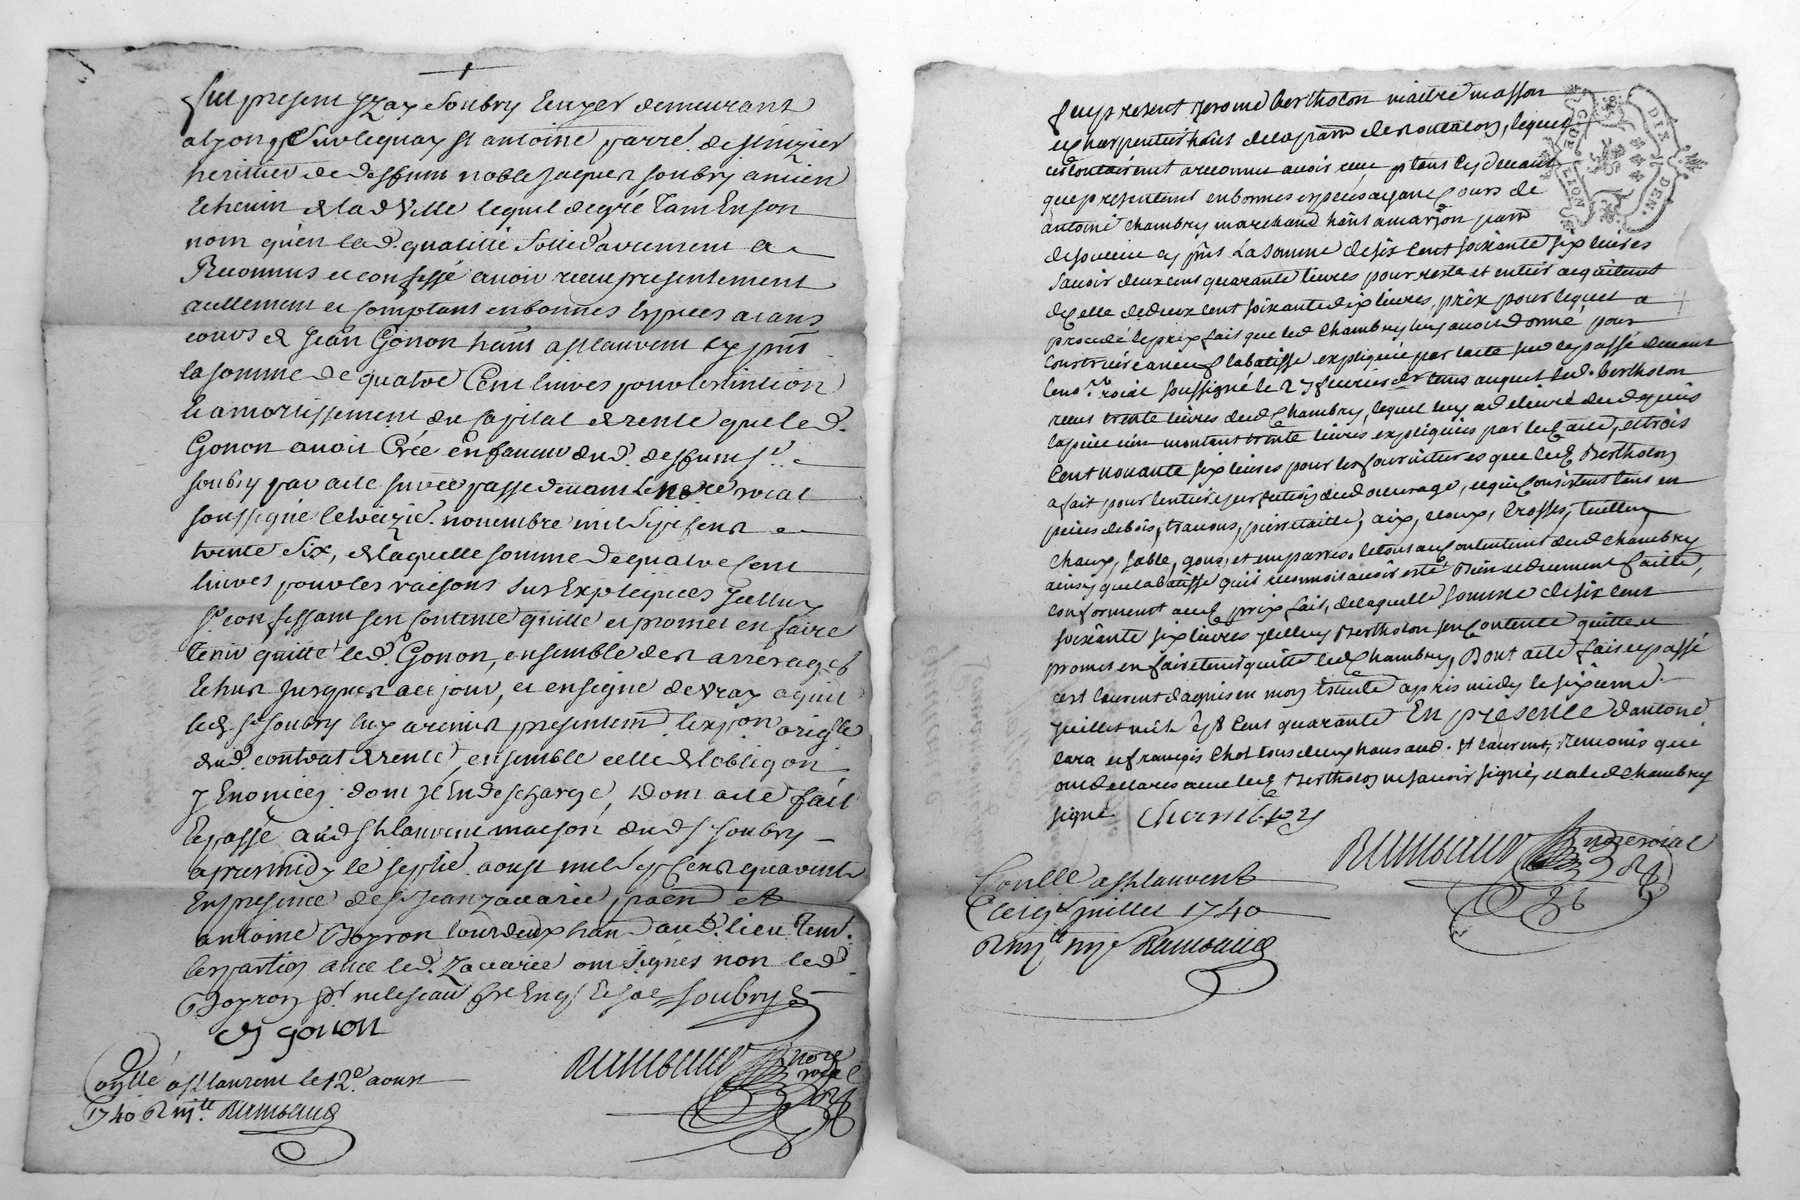 fut present Izay Soubry Ecuyer demeurant
a Lyon sur le quay St antoine parre. de St nizier
heritier de deffunt noble jacques Soubry ancien
Echevin de lad. Ville lequel de gré tant En son
nom qu'en lad. qualitté Sollidairement a
Reconnus et confessé avoir receu presentement
reellement et comptant en bonnes Especes aians
cours de Jean Gonon hant a St laurent cy pnt
la somme de quatre Cent livres pour l'extinction
Et amortissement du capital de rente que led.
Gonon avoit Créé en faveur dud. deffunt Sr.
Soubry par acte sur ce passé devant Le nore roial
soussigné le novembre mil Sept Cent
trente Six, de laquelle somme de quatre Cent
livres pour les raisons sus Expliquées Icelluy
Sr confessant s'en contente quitte et promet en faire
tenir quitte led. Gonon, ensemble des arrerages
Echus jusques a ce jour, et en signe de vray a quit
led. Sr Soubry luy a remis presentemt. l'exp.on origlle
dud. contrat de rente, ensemble celle de l'obligon
y Enoncée dont il En descharge, Dont acte fait
Et passé aud. St laurent maison dud. Sr Soubry
apres midy le aoust mil sept Cent quarente
En presence de Sr Jean Zacarie, et
antoine Boyron tous deux hant aud. lieu Tem.
les parties avec led. Zacarie ont signés non led.
Boyron pr. ne le scavoir Enq. Soubry
Gonon
Conllé a St laurent le 12e. aoust
1740 R Rambaud
Rambaud nore
roial
fut present Jerome Bertholon maitre masson
et charpentier hant de la parre de montalon, lequel
vollontairement a reconnu avoir receu tant cy devant
que presentemt en bonnes especes ayant cours de
antoine Chambry marchand hant a parre
de cy pnt La somme de six cent soixante six livres
Savoir deux cent quarante livres pour reste et entier acquitemt
de celle de deux cent soixante dix livres, prix pour lequel a
procedé le prix fait que led. Chambry luy avoit donné, pour
construire a neuf la batisse expliquée par l'acte sur ce passé devant
le no.re roial soussigné le 27 fevrier auquel led. Bertholon
receut trente livres dud. Chambry, lequel luy a delivré
la piece vin montant trente livres expliquées par led. acte, et trois
Cent nonante six livres pour les fournitures que led. Bertholon
a fait pour l'entiere perfection dud. ouvrage, et qui Consistent tant en
pieces de bois, travons, pierre taille, aix, cloux, Crosses, tuilles,
chaux, sable, gons, et emparres. le tout au Contentemt dud. Chambry
ainsy que la batisse qu'il reconnois avoir esté Bien et duement faitte,
conformemt aud. prix fait, de laquelle somme de six cent
soixante six livres Icelluy Bertholon s'en Contente quitte et
promet en faire tenir quitte led. Chambry, Dont acte fait et passé
a St laurent d'agnis en mon Etude apres midy le sixieme
juillet mil sept Cent quarante En presence d'antoine
Cara et françois Chol tous deux hans aud. St laurent, Temoins qui
ont declarés avec led. Bertholon ne savoir signé, et a led. Chambry
signé Chambry
Rambaud nore roial
Conllé a St laurent
Le juillet 1740
Rambaud
G. DE LION
DIX DEN.